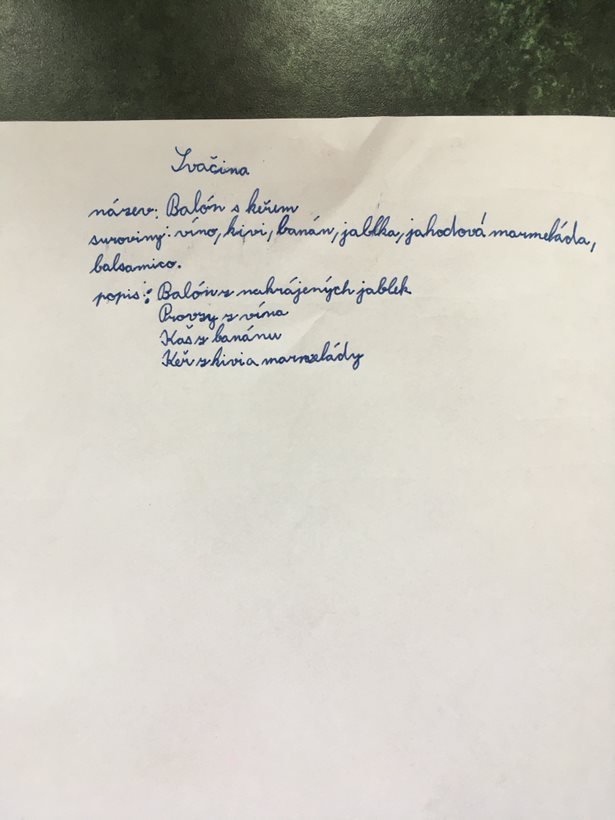 Svačina
název: Balón s keřem
suroviny: víno, kivi, banán, jablka, jahodová marmeláda,
balsamico.
popis: Balón z nakrájených jablek
Provzy z vína
Kaš z banánu
Keř z kivi a marmelády